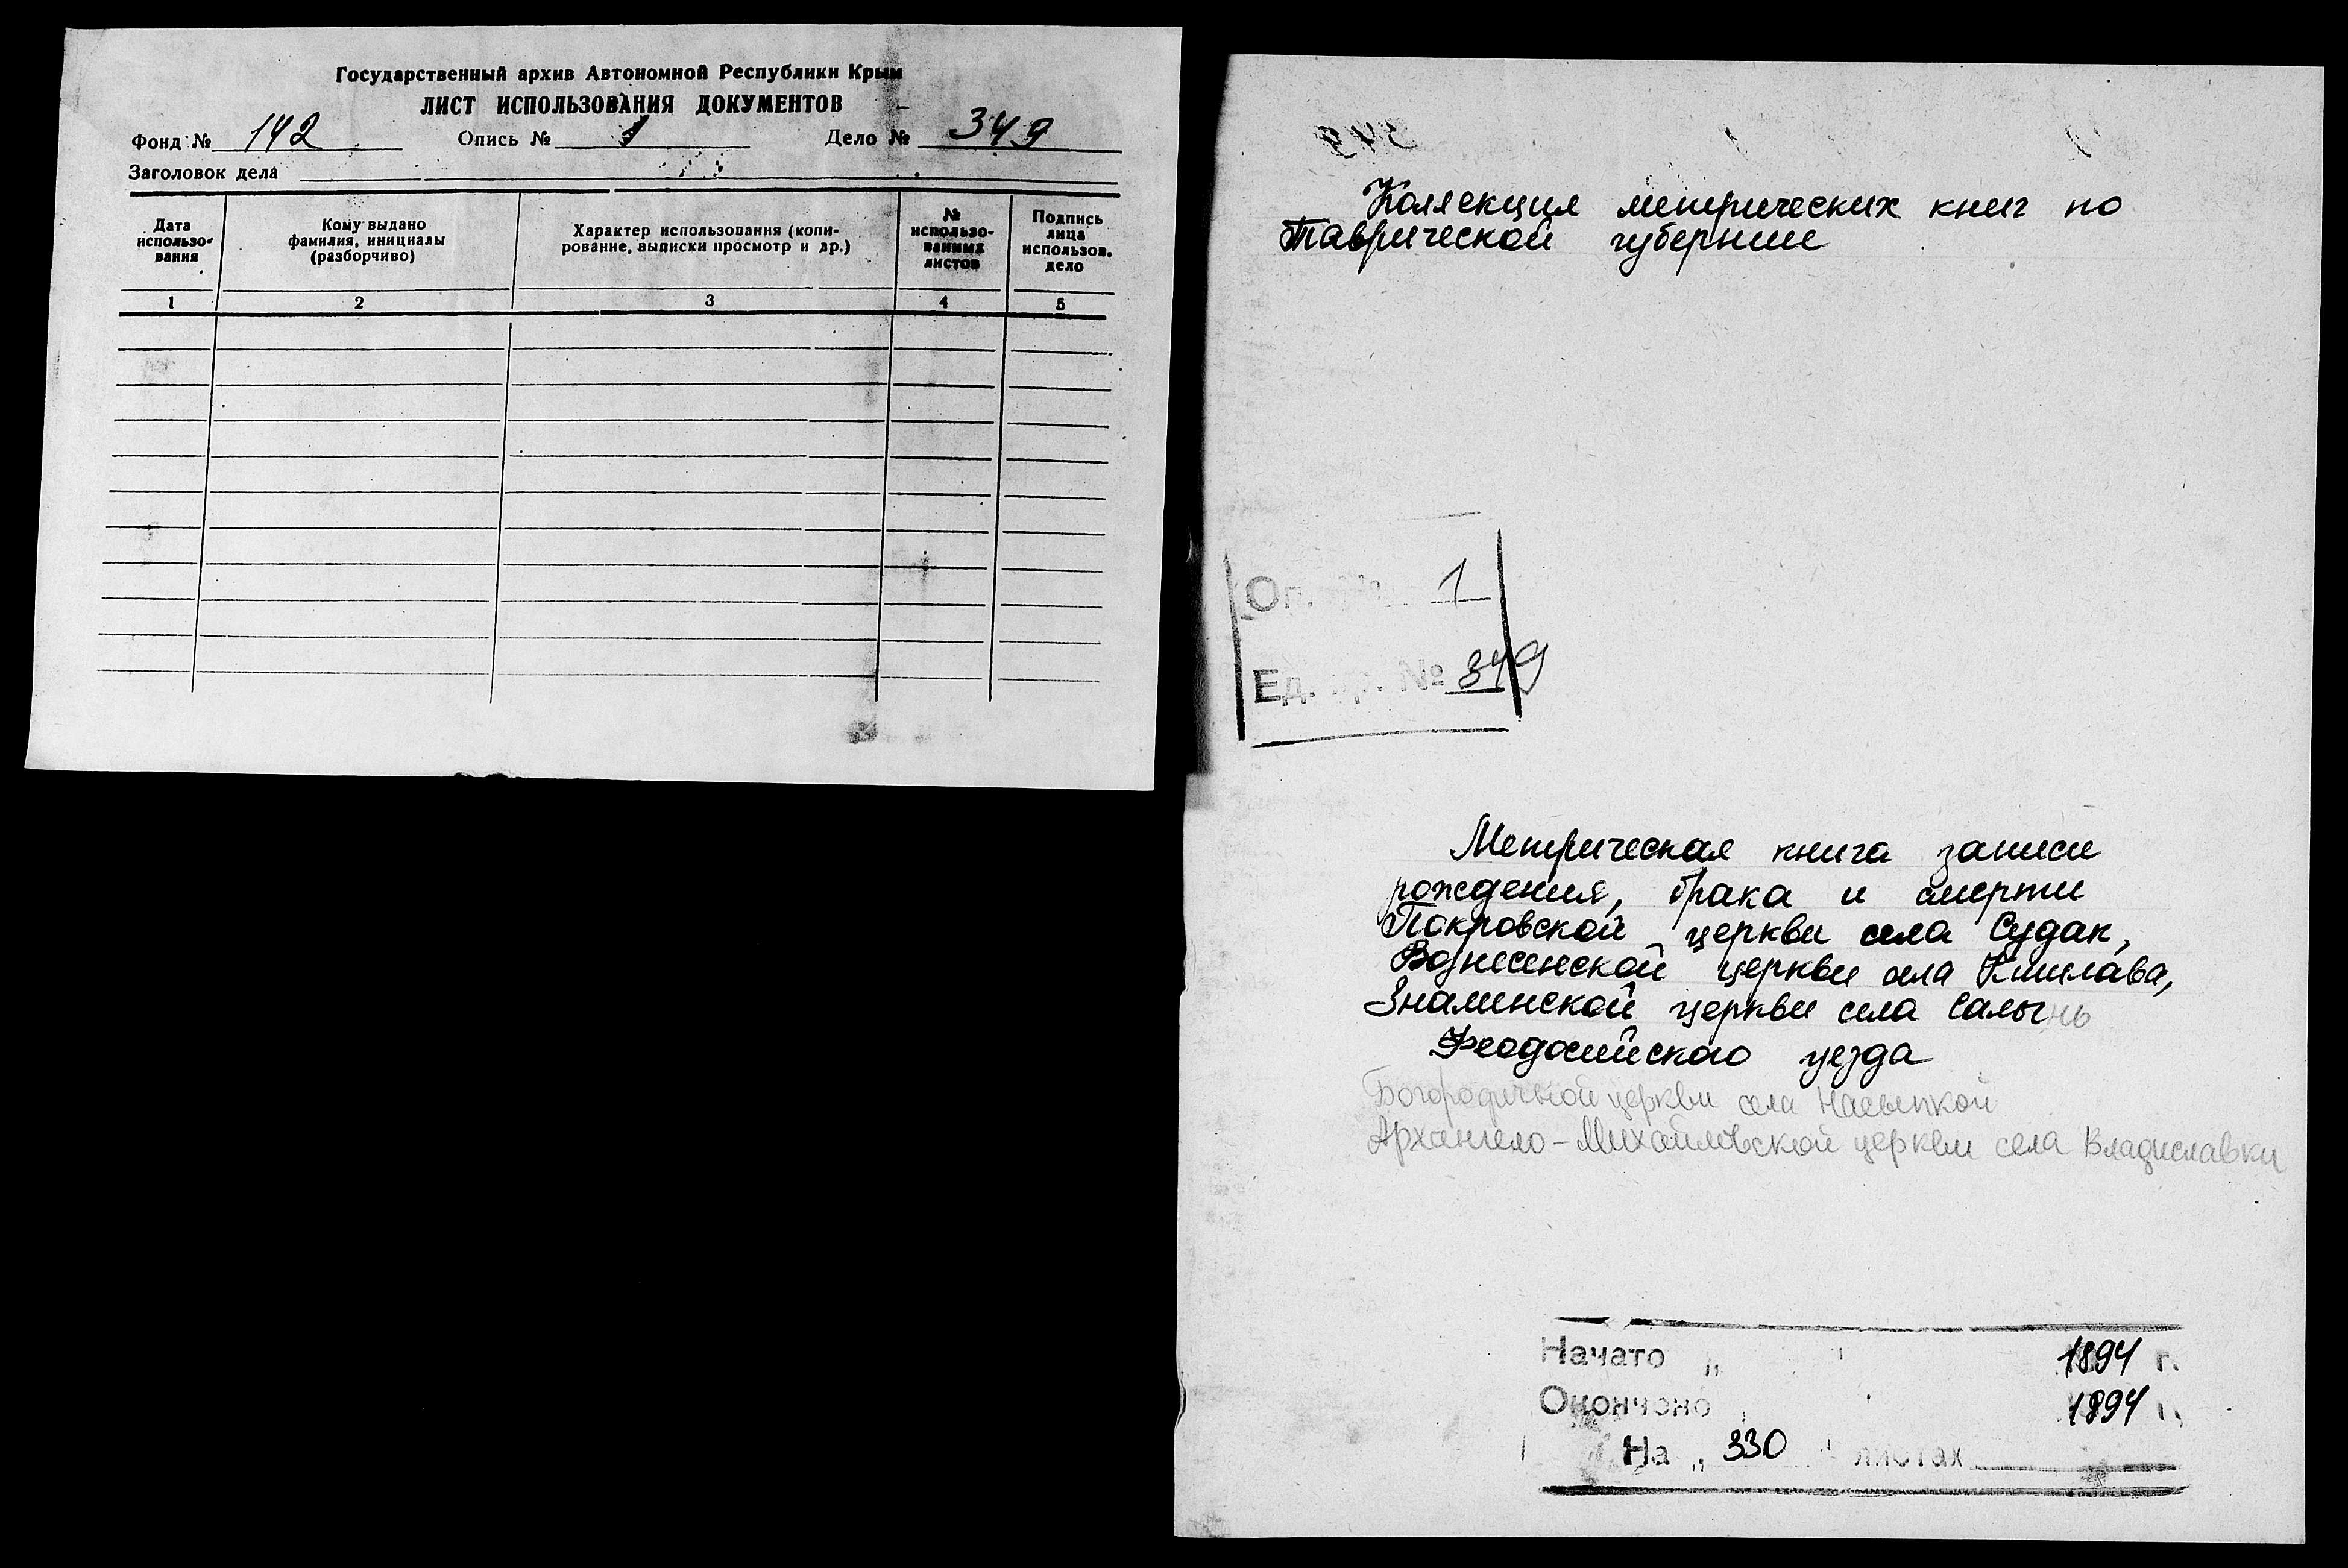 Государственный архив Автономной Республики Крым
ЛИСТ ИСПОЛЬЗОВАНИЯ ДОКУМЕНТОВ
Фонд № 142 Опись № 1 Дело № 349
Заголовок дела
Дата использо-вания
Кому выдано фамилия, инициалы (разборчиво)
Характер использования (копи-рование, выписки просмотр и др.)
№ использо-ванных листов
Подпись лица использов. дело
1 2 3 4 5
Коллекция метрических книг по
Таврической губернии
Оп. № 1
Ед. хр. № 349
Метрическая книга записи
рождения, брака и смерти
Покровской церкви села Судак,
Вознесенской церкви села Кишлава,
Знаминской церкви села Салынь
Феодосийского уезда
Богородичной церкви села Насыпкой
Архангело-Михайловской церкви села Владиславки
Начато " " 1894 г.
Окончено 1894 г.
На „ 330 " листах